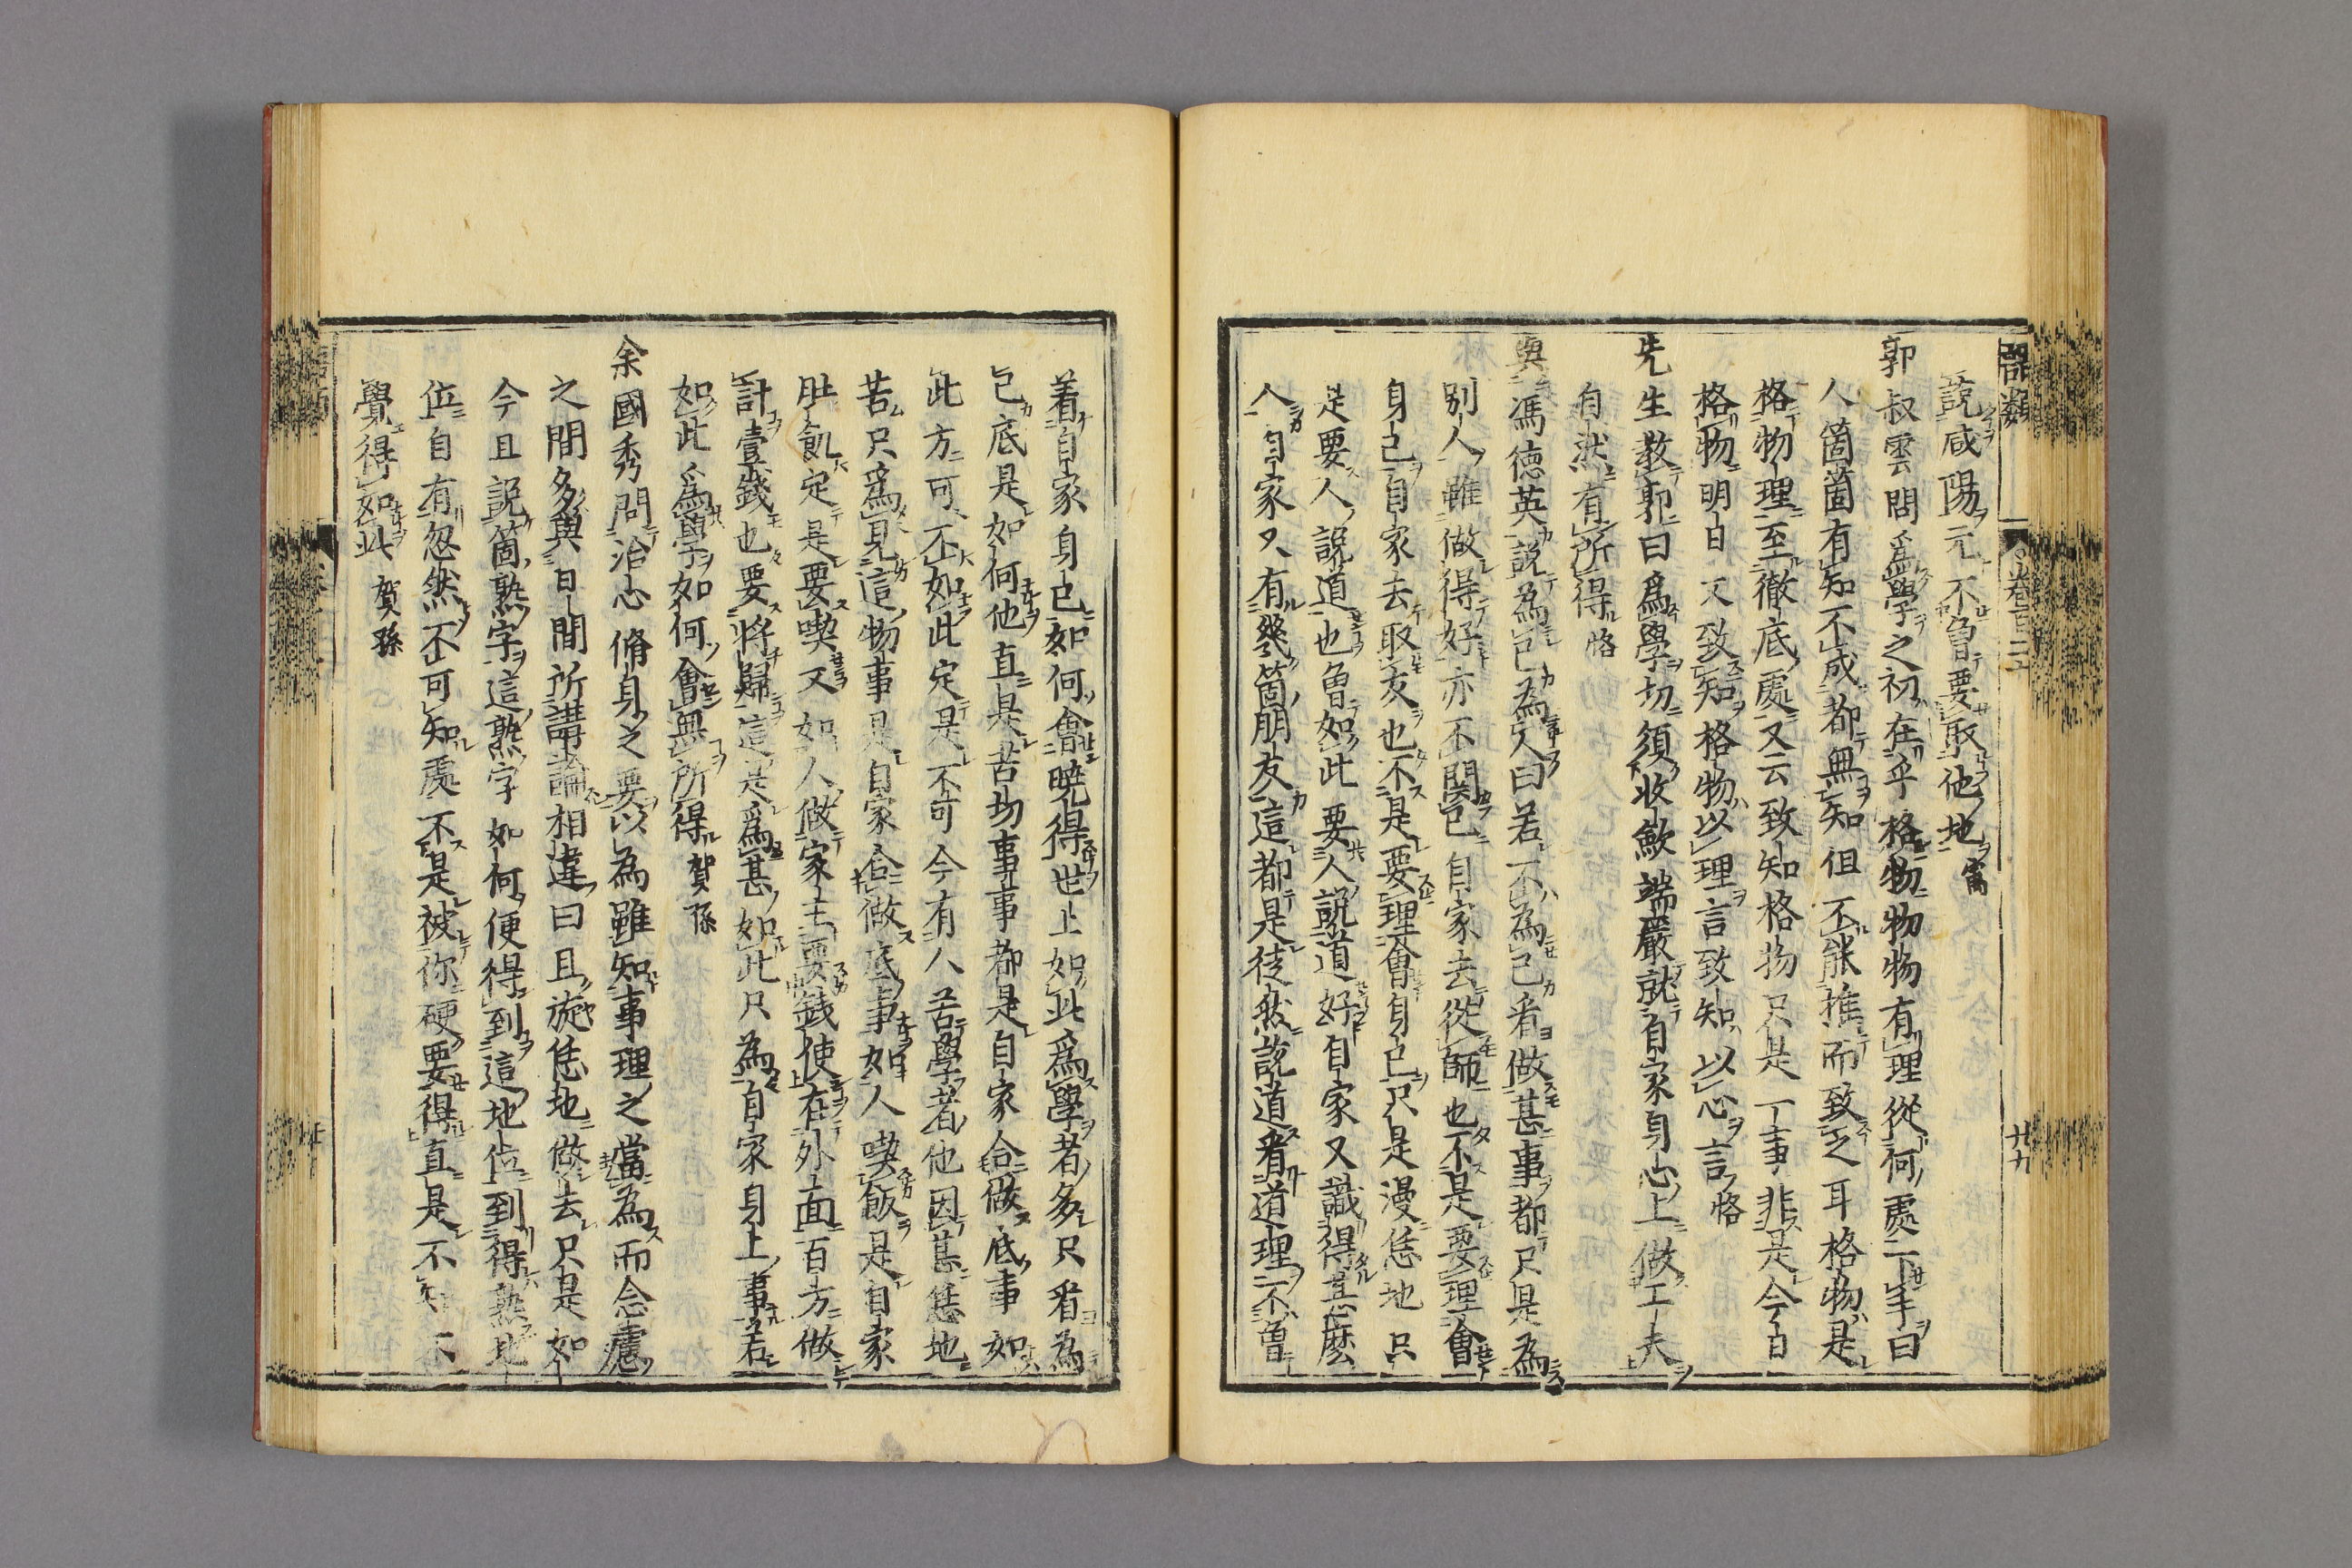 語類
卷百二十
廿九
說咸陽元不曾要取他地 㝢
郭叔雲問爲學之初在乎格物物物有理從何處下手曰
人箇箇有知不成都無知但不能推而致之耳格物是
格物理至徹底處又云致知格物只是一事非是今日
格物明日又致知格物以理言致知以心言 恪
先生教郭曰爲學切須收歛端嚴就自家身心上做工夫
自然有所得 恪
與馮德英說為己為人曰若不為己看做甚事都只是為
別人雖做得好亦不關己自家去從師也不是要理會
身己自家去取友也不是要理會身己只是漫恁地只
是要人說道也曾如此要人說道好自家又識得甚麽
人自家又有幾箇朋友這都是徒然說道看道理不曾
着自家身己如何會曉得世上如此爲學者多只看為
己底是如何他直是苦切事事都是自家合做底事如
此方可不如此定是不可今有人苦學者他因甚恁地
苦只爲見這物事是自家合做底事如人喫飯是自家
肚飢定是要喫又如人做家主要錢使在外面百方做
計壹錢也要將歸這是爲甚如此只為自家身上事若
如此爲學如何會無所得 賀孫
余國秀問治心脩身之要以為雖知事理之當為而念慮
之間多與日間所講論相違曰且旋恁地做去只是如
今且說箇熟字這熟字如何便得到這地位到得熟地
位自有忽然不可知處不是被你硬要得直是不知不
覺得如此 賀孫